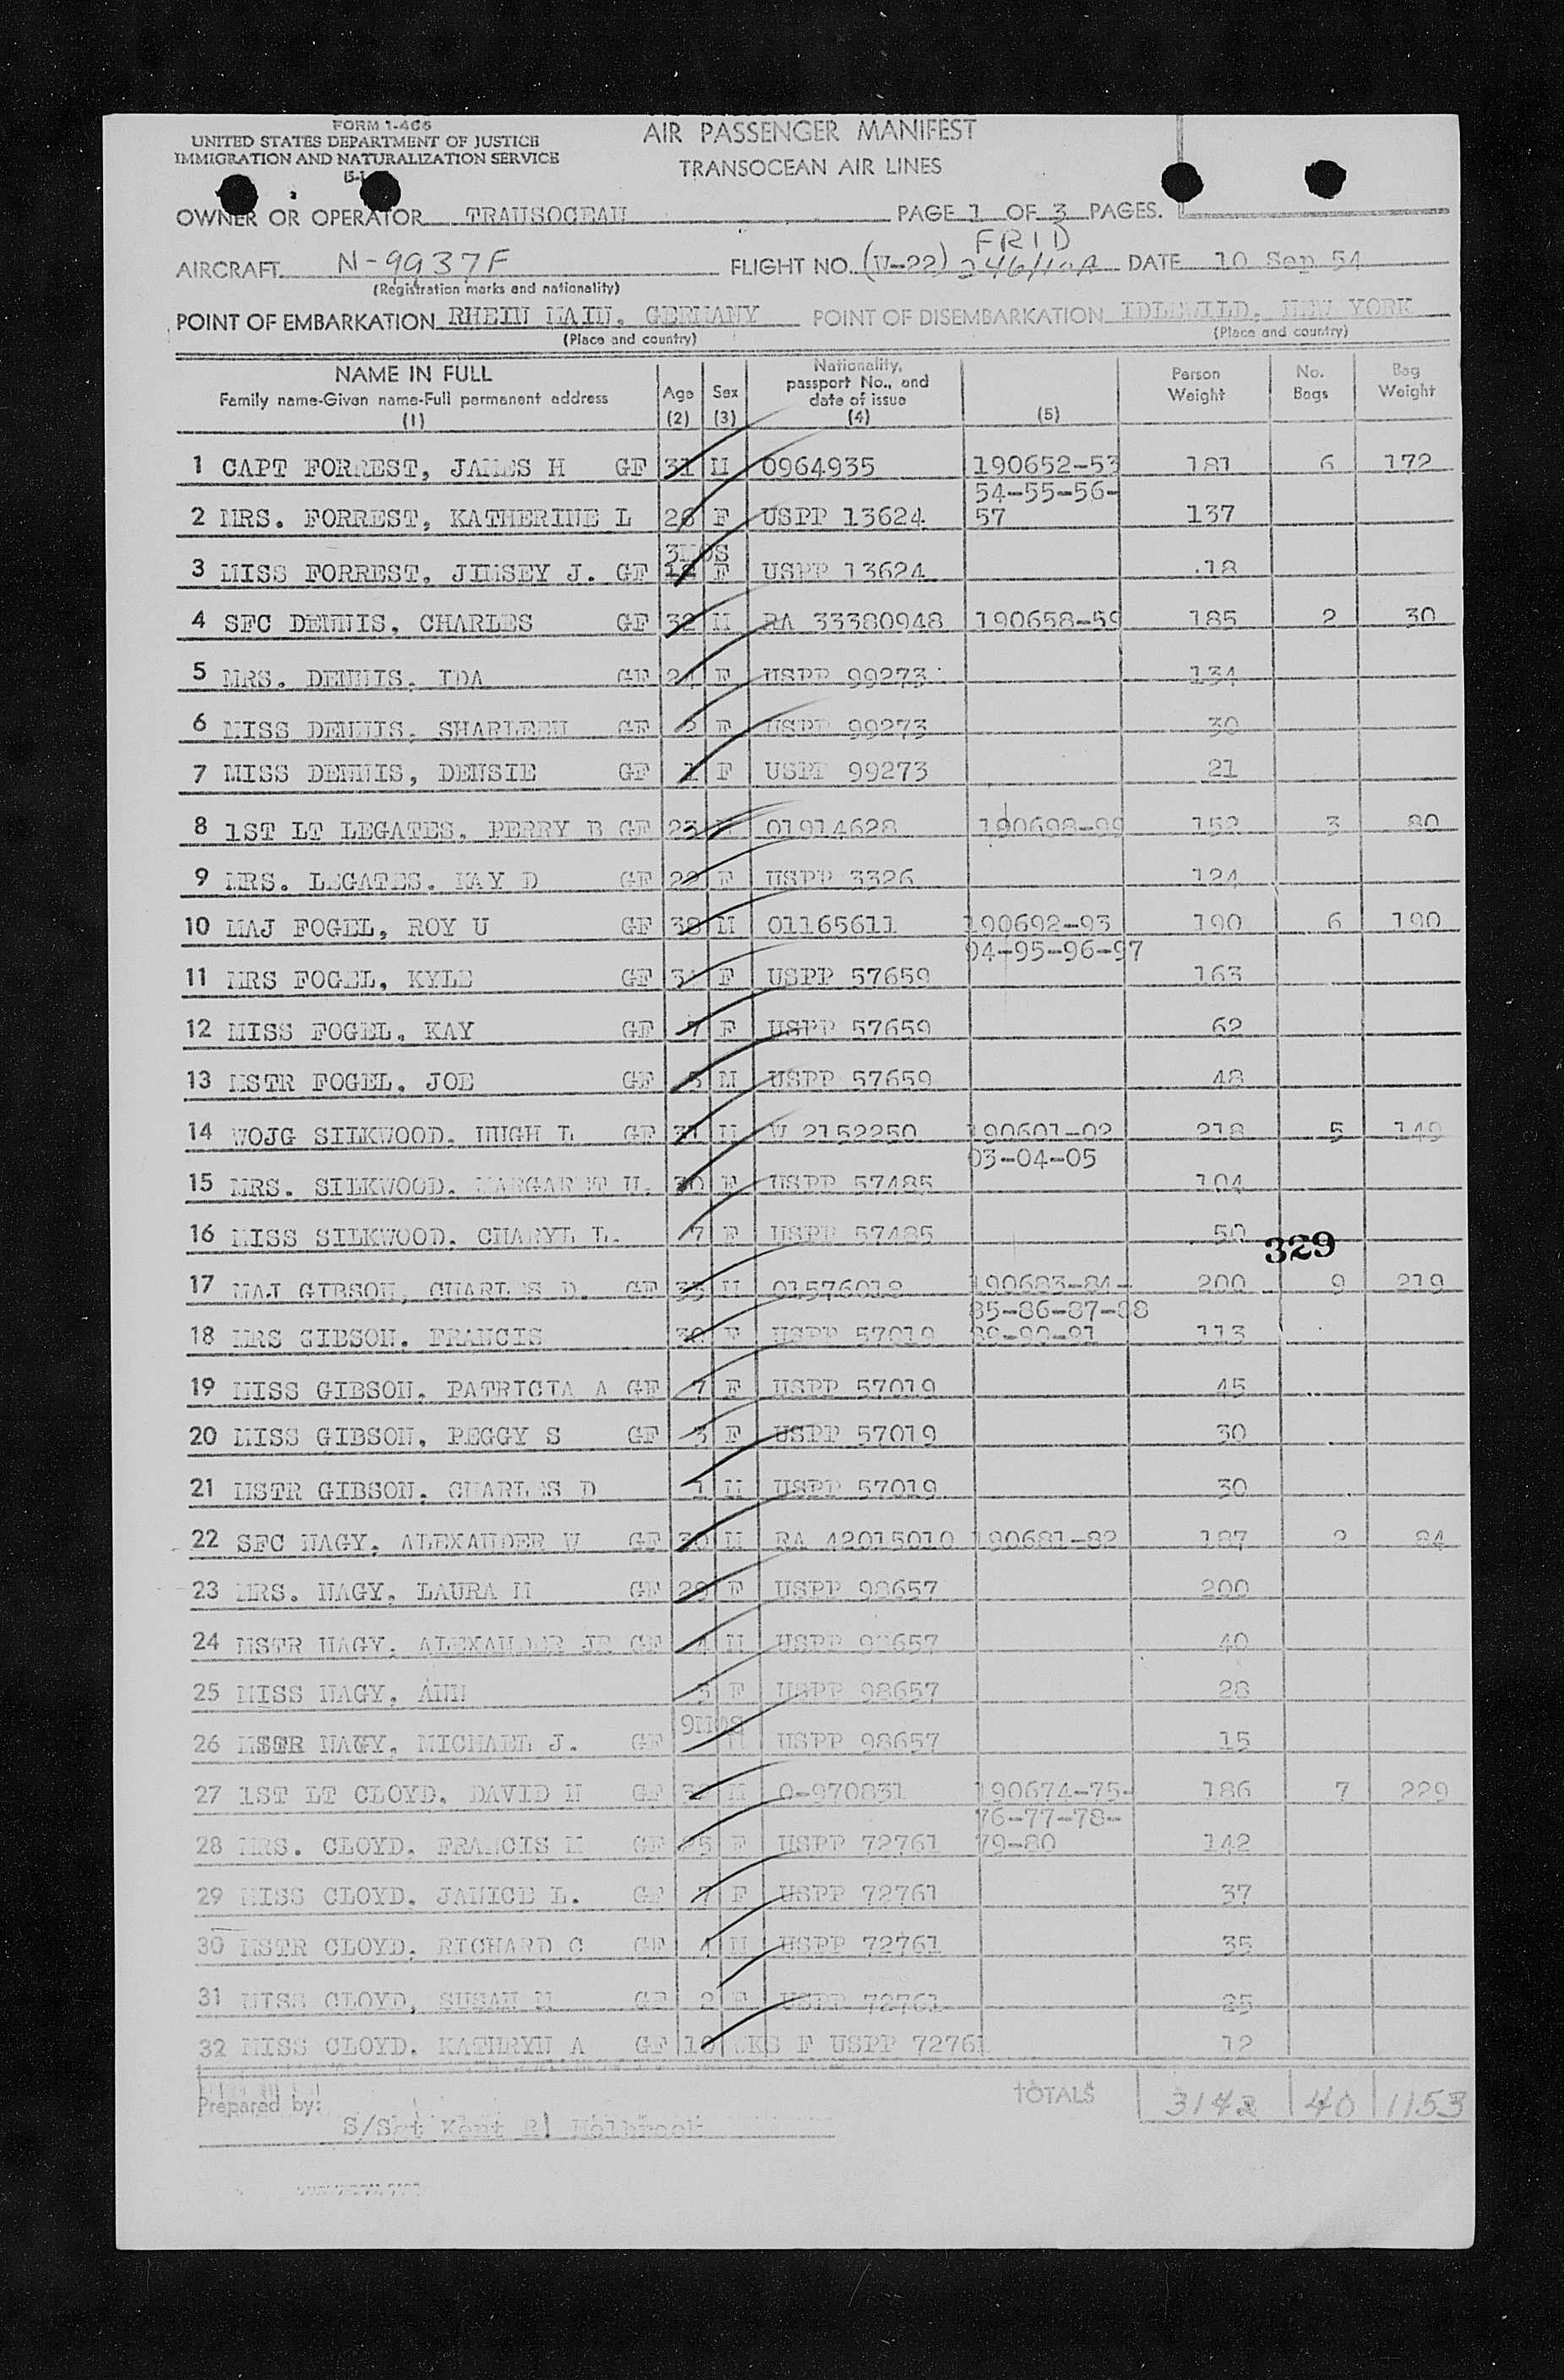 FORM 1-466
UNITED STATES DEPARTMENT OF JUSTICE
IMMIGRATION AND NATURALIZATION SERVICE
AIR PASSENGER MANIFEST
TRANSOCEAN AIR LINES
OWNER OR OPERATOR TRANSOCEAN PAGE 1 OF 3 PAGES.
FRID
AIRCRAFT N-9937F FLIGHT NO. (W-22) 246/10A DATE 10 Sep 54
(Registration marks and nationality)
POINT OF EMBARKATION RHEIN MAIN, GERMANY POINT OF DISEMBARKATION IDLEWILD, NEW YORK
(Place and country) (Place and country)
NAME IN FULL Family name-Given name-Full permanent address (1) Age (2) Sex (3) Nationality, passport No., and date of issue (4) (5) Person Weight No. Bags Bag Weight
1 CAPT FORREST, JAMES H GF 31 M 0964935 190652-53 181 6 172
54-55-56-
2 MRS. FORREST, KATHERINE L 26 F USPP 13624 57 137
3MOS
3 MISS FORREST, JIMSEY J. GF 12 F USPP 13624 18
4 SFC DENNIS, CHARLES GF 32 M RA 33380948 190658-59 185 2 30
5 MRS. DENNIS, IDA GF 24 F USPP 99273 134
6 MISS DENNIS, SHARLEEN GF 2 F USPP 99273 30
7 MISS DENNIS, DENSIE GF 1 F USPP 99273 21
8 1ST LT LEGATES, PERRY B GF 23 M 01914628 190698-99 152 3 80
9 MRS. LEGATES, KAY D GF 22 F USPP 3326 124
10 MAJ FOGEL, ROY U GF 38 M 01165611 190692-93 190 6 190
94-95-96-97
11 MRS FOGEL, KYLE GF F USPP 57659 163
12 MISS FOGEL, KAY GF 7 F USPP 57659 62
13 MSTR FOGEL, JOE GF 5 M USPP 57659 48
14 WOJG SILKWOOD, HUGH L GF 31 M W 2152250 190601-02 218 5 149
03-04-05
15 MRS. SILKWOOD, MARGARET H. 30 F USPP 57485 104
16 MISS SILKWOOD, CHARYL L. 7 F USPP 57485 50
329
17 MAJ GIBSON, CHARLES D. GF 35 M 01576018 190683-84- 200 9 219
85-86-87-88
18 MRS GIBSON, FRANCIS 30 F USPP 57019 89-90-91 113
19 MISS GIBSON, PATRICIA A GF 7 F USPP 57019 45
20 MISS GIBSON, PEGGY S GF 3 F USPP 57019 30
21 MSTR GIBSON, CHARLES D 1 M USPP 57019 30
22 SFC NAGY, ALEXANDER W GF 30 M RA 42015010 190681-82 187 2 84
23 MRS. NAGY, LAURA M GF 29 F USPP 98657 200
24 MSTR NAGY, ALEXANDER JR GF 4 M USPP 98657 40
25 MISS NAGY, ANN 3 F USPP 98657 28
9MOS
26 MSTR NAGY, MICHAEL J. GF M USPP 98657 15
27 1ST LT CLOYD, DAVID H GF M 0-970831 190674-75- 186 7 229
76-77-78-
28 MRS. CLOYD, FRANCIS M GF 25 F USPP 72761 79-80 142
29 MISS CLOYD, JANICE L. GF 7 F USPP 72761 37
30 MSTR CLOYD, RICHARD C GF 4 M USPP 72761 35
31 MISS CLOYD, SUSAN M GF 2 F USPP 72761 25
32 MISS CLOYD, KATHRYN A GF 10 WKS F USPP 72761 12
TOTALS 3142 40 1153
Prepared by:
S/Sgt Kent R Holbrook